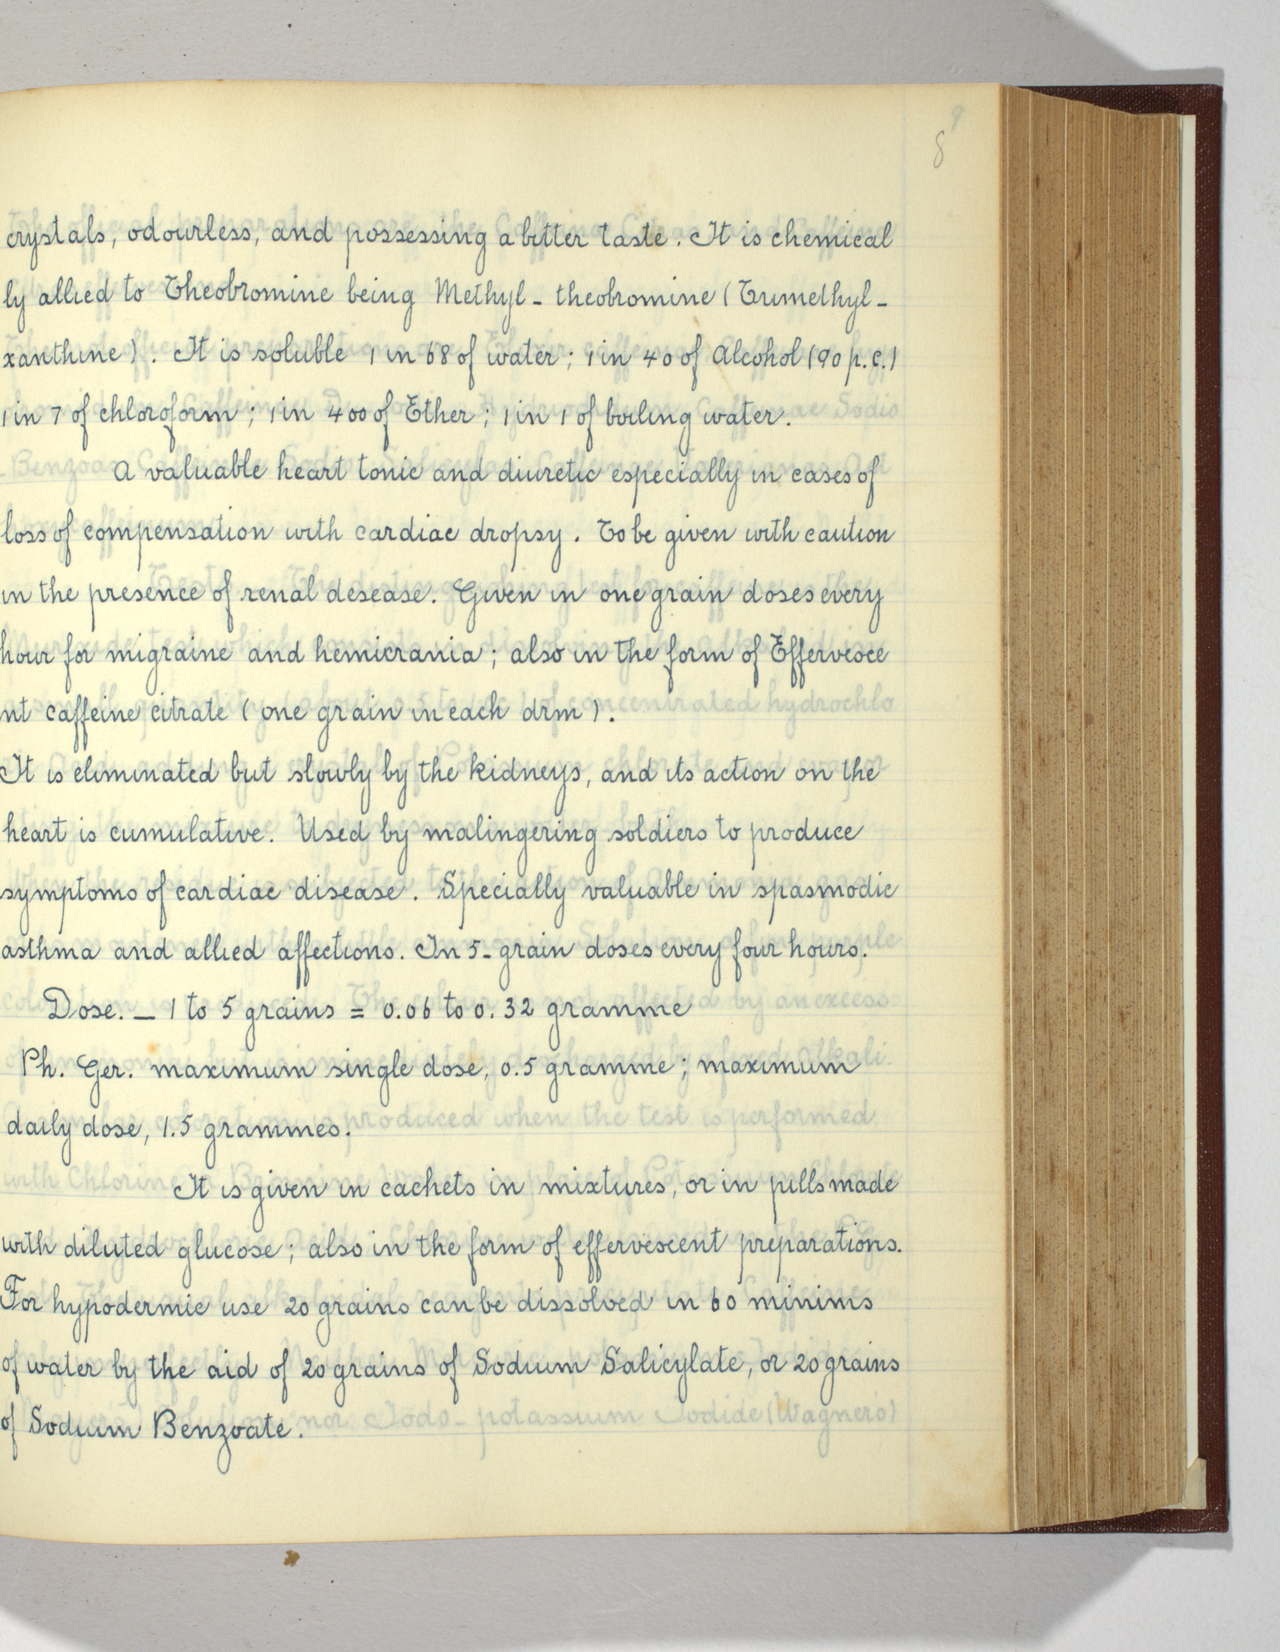 8
crystals, odourless, and possessing a bitter taste. It is chemical
ly allied to Theobromine being Methyl - theobromine (Trimethyl -
xanthine). It is soluble 1 in 68 of water; 1 in 40 of Alcohol (90 p.c.)
1 in 7 of chloroform; 1 in 400 of Ether; 1 in 1 of boiling water.
A valuable heart tonic and diuretic especially in cases of
loss of compensation with cardiac dropsy. To be given with caution
in the presence of renal desease. Given in one grain doses every
hour for migraine and hemicrania; also in the form of Effervesce
nt caffeine citrate (one grain in each drm).
It is eliminated but slowly by the kidneys, and its action on the
heart is cumulative. Used by malingering soldiers to produce
symptoms of cardiac disease. Specially valuable in spasmodic
asthma and allied affections. In 5-grain doses every four hours.
Dose. — 1 to 5 grains = 0.06 to 0.32 gramme
Ph. Ger. maximum single dose, 0.5 gramme; maximum
daily dose, 1.5 grammes.
It is given in cachets in mixtures, or in pills made
with diluted glucose; also in the form of effervescent preparations.
For hypodermic use 20 grains can be dissolved in 60 minims
of water by the aid of 20 grains of Sodium Salicylate, or 20 grains
of Sodium Benzoate.